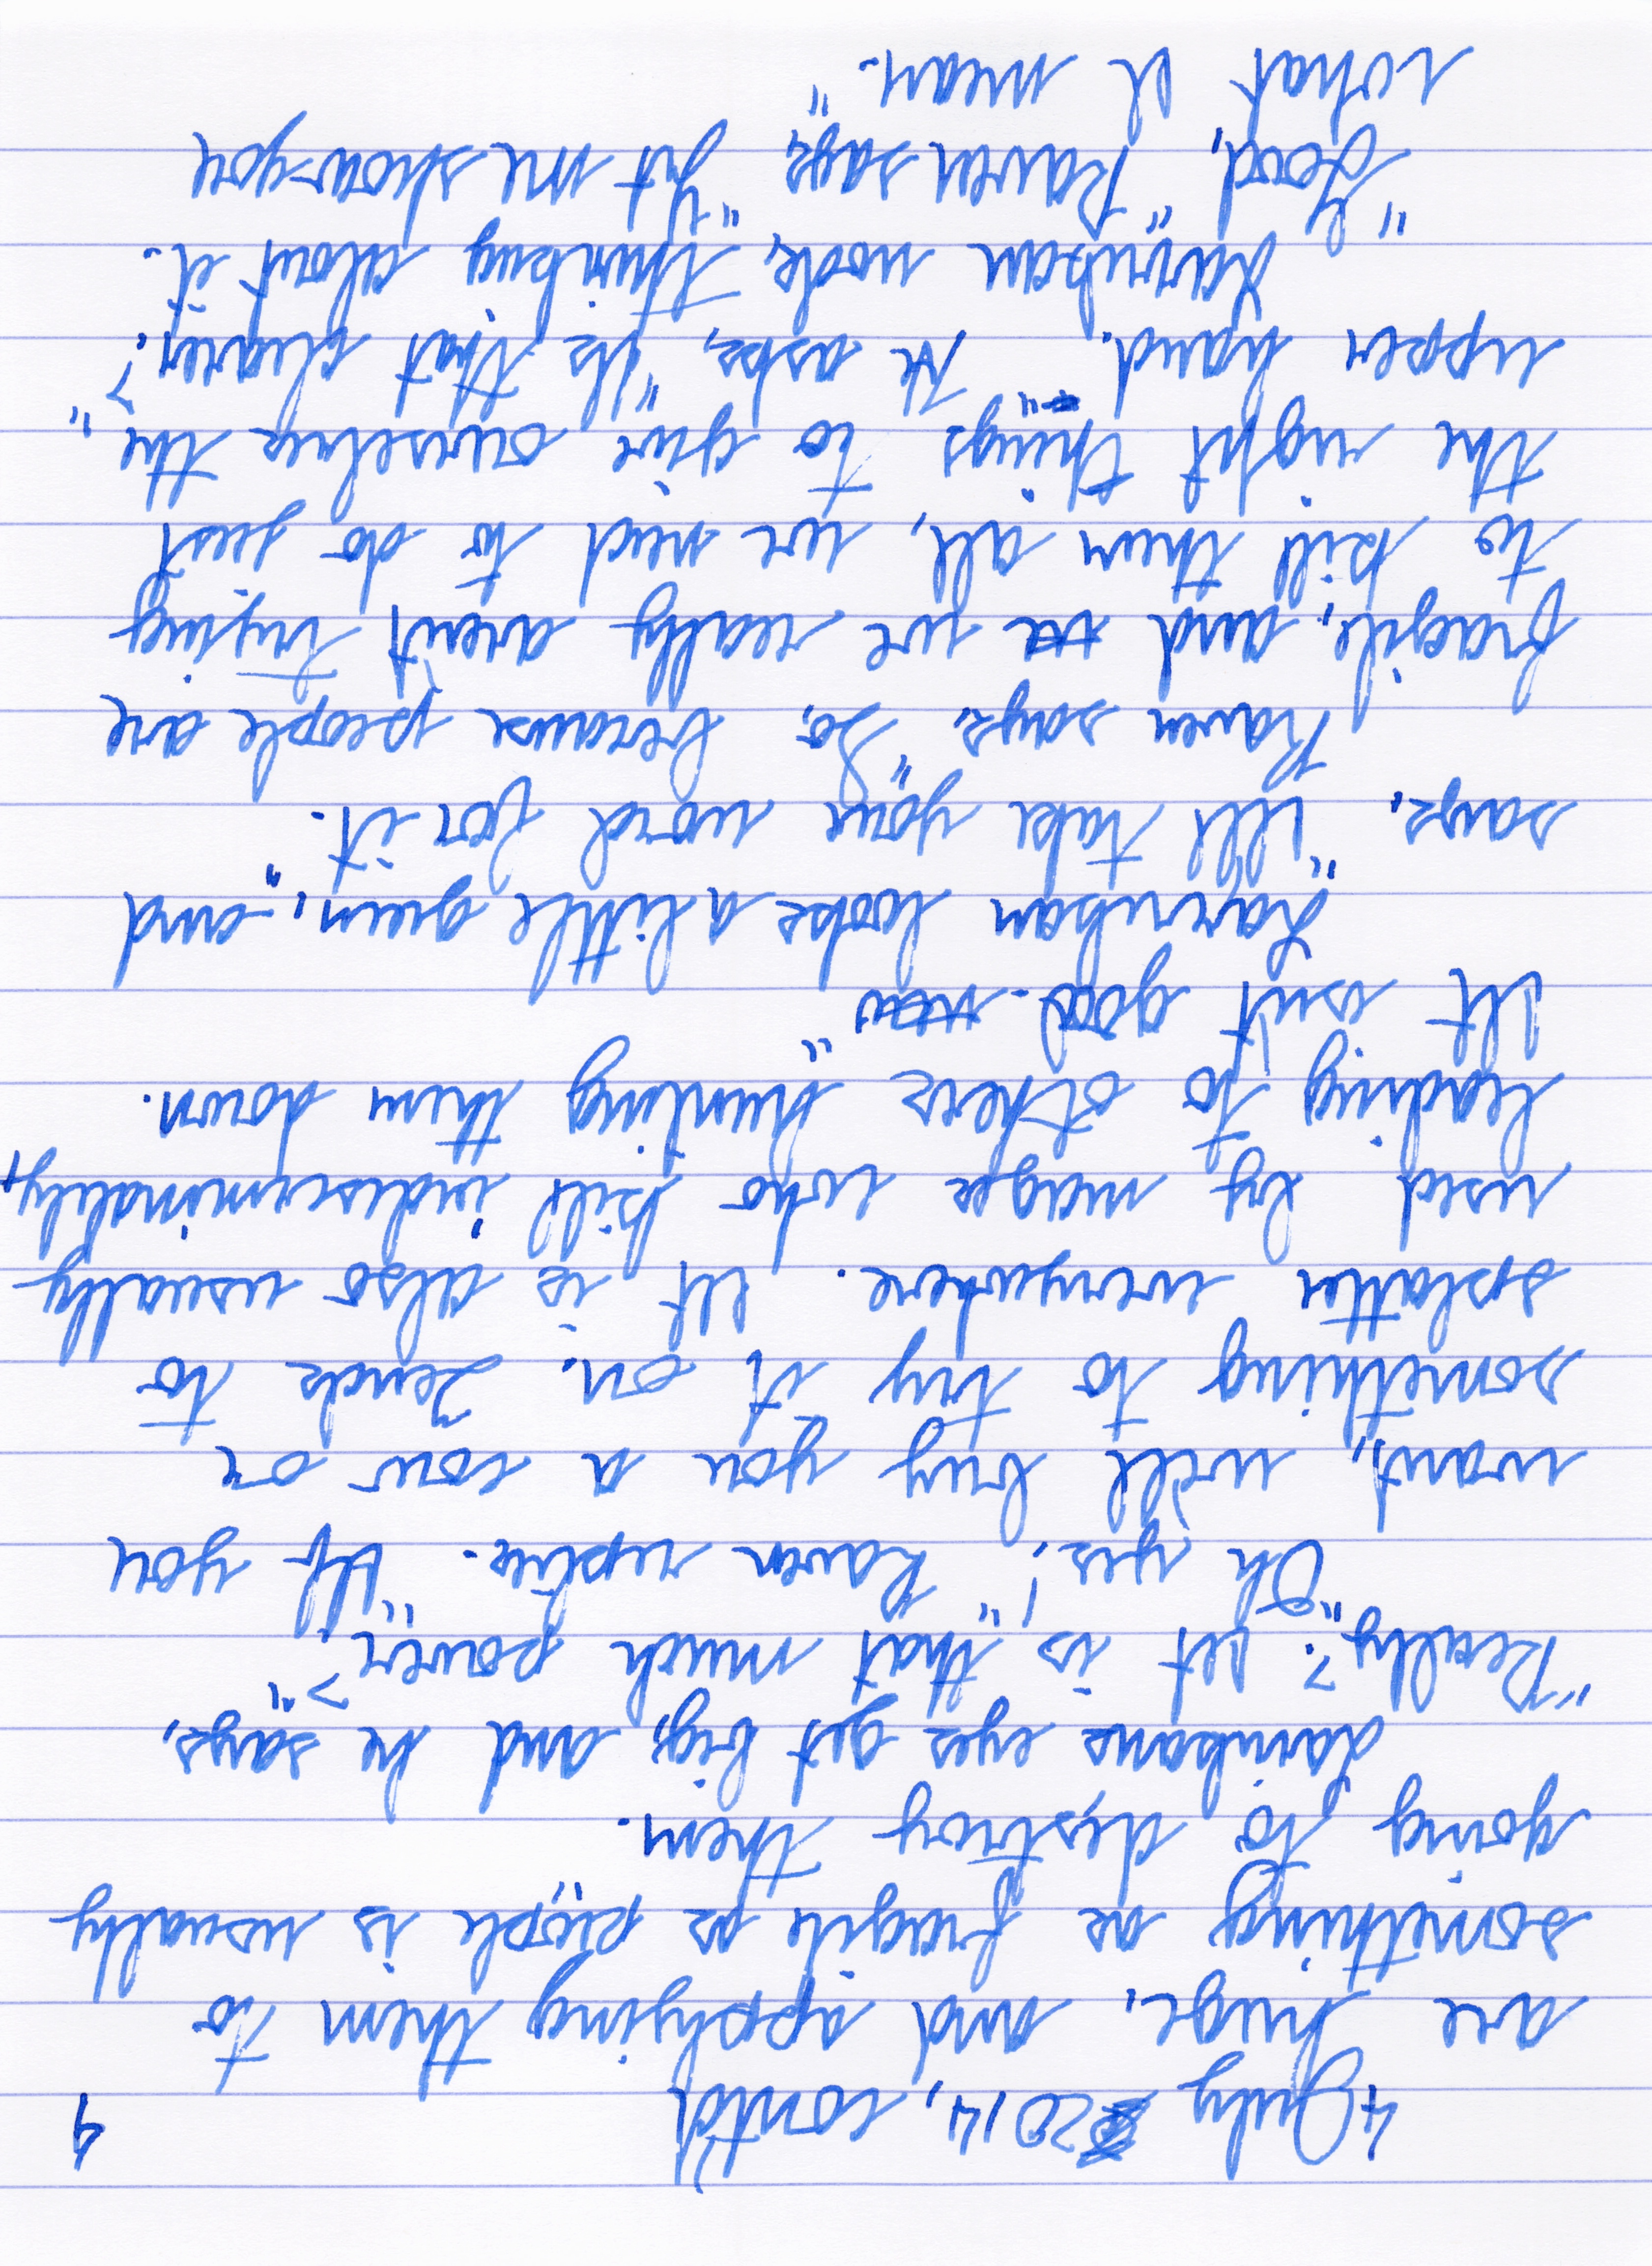 4 July 2014, cont'd 9
are huge, and applying them to
something as fragile as people is usually
going to destroy them."
Darribans eyes get big, and he says,
"Really? It is that much power?"
"Oh yes!" Raven replies. "If you
want, I will buy you a cow or
something to try it on. Tends to
splatter everywhere. It is also usually
used by mages who kill indiscriminately,
leading to others hunting them down.
It isn't good."
Darriban looks a little green, and
says, "I'll take your word for it."
Raven says, "So, because people are
fragile, and we really aren't trying
to kill them all, we need to do just
the right things to give ourselves the
upper hand." He asks, "Is that clearer?"
Darriban nods, thinking about it.
"Good," Raven says, "Let me show you
what I mean."